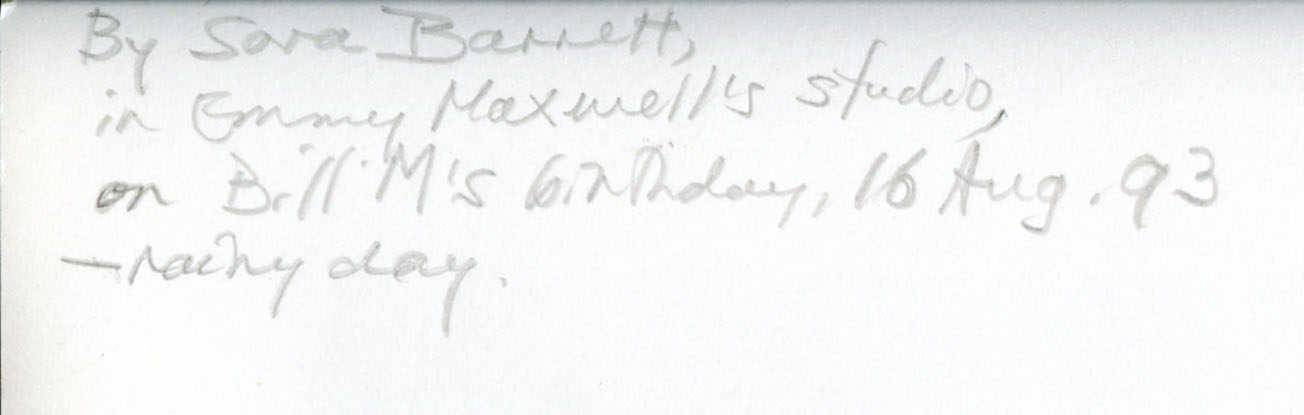 By Sara Barrett,
in Emmy Maxwell's studio,
on Bill M's birthday, 16 Aug. 93
—rainy day.